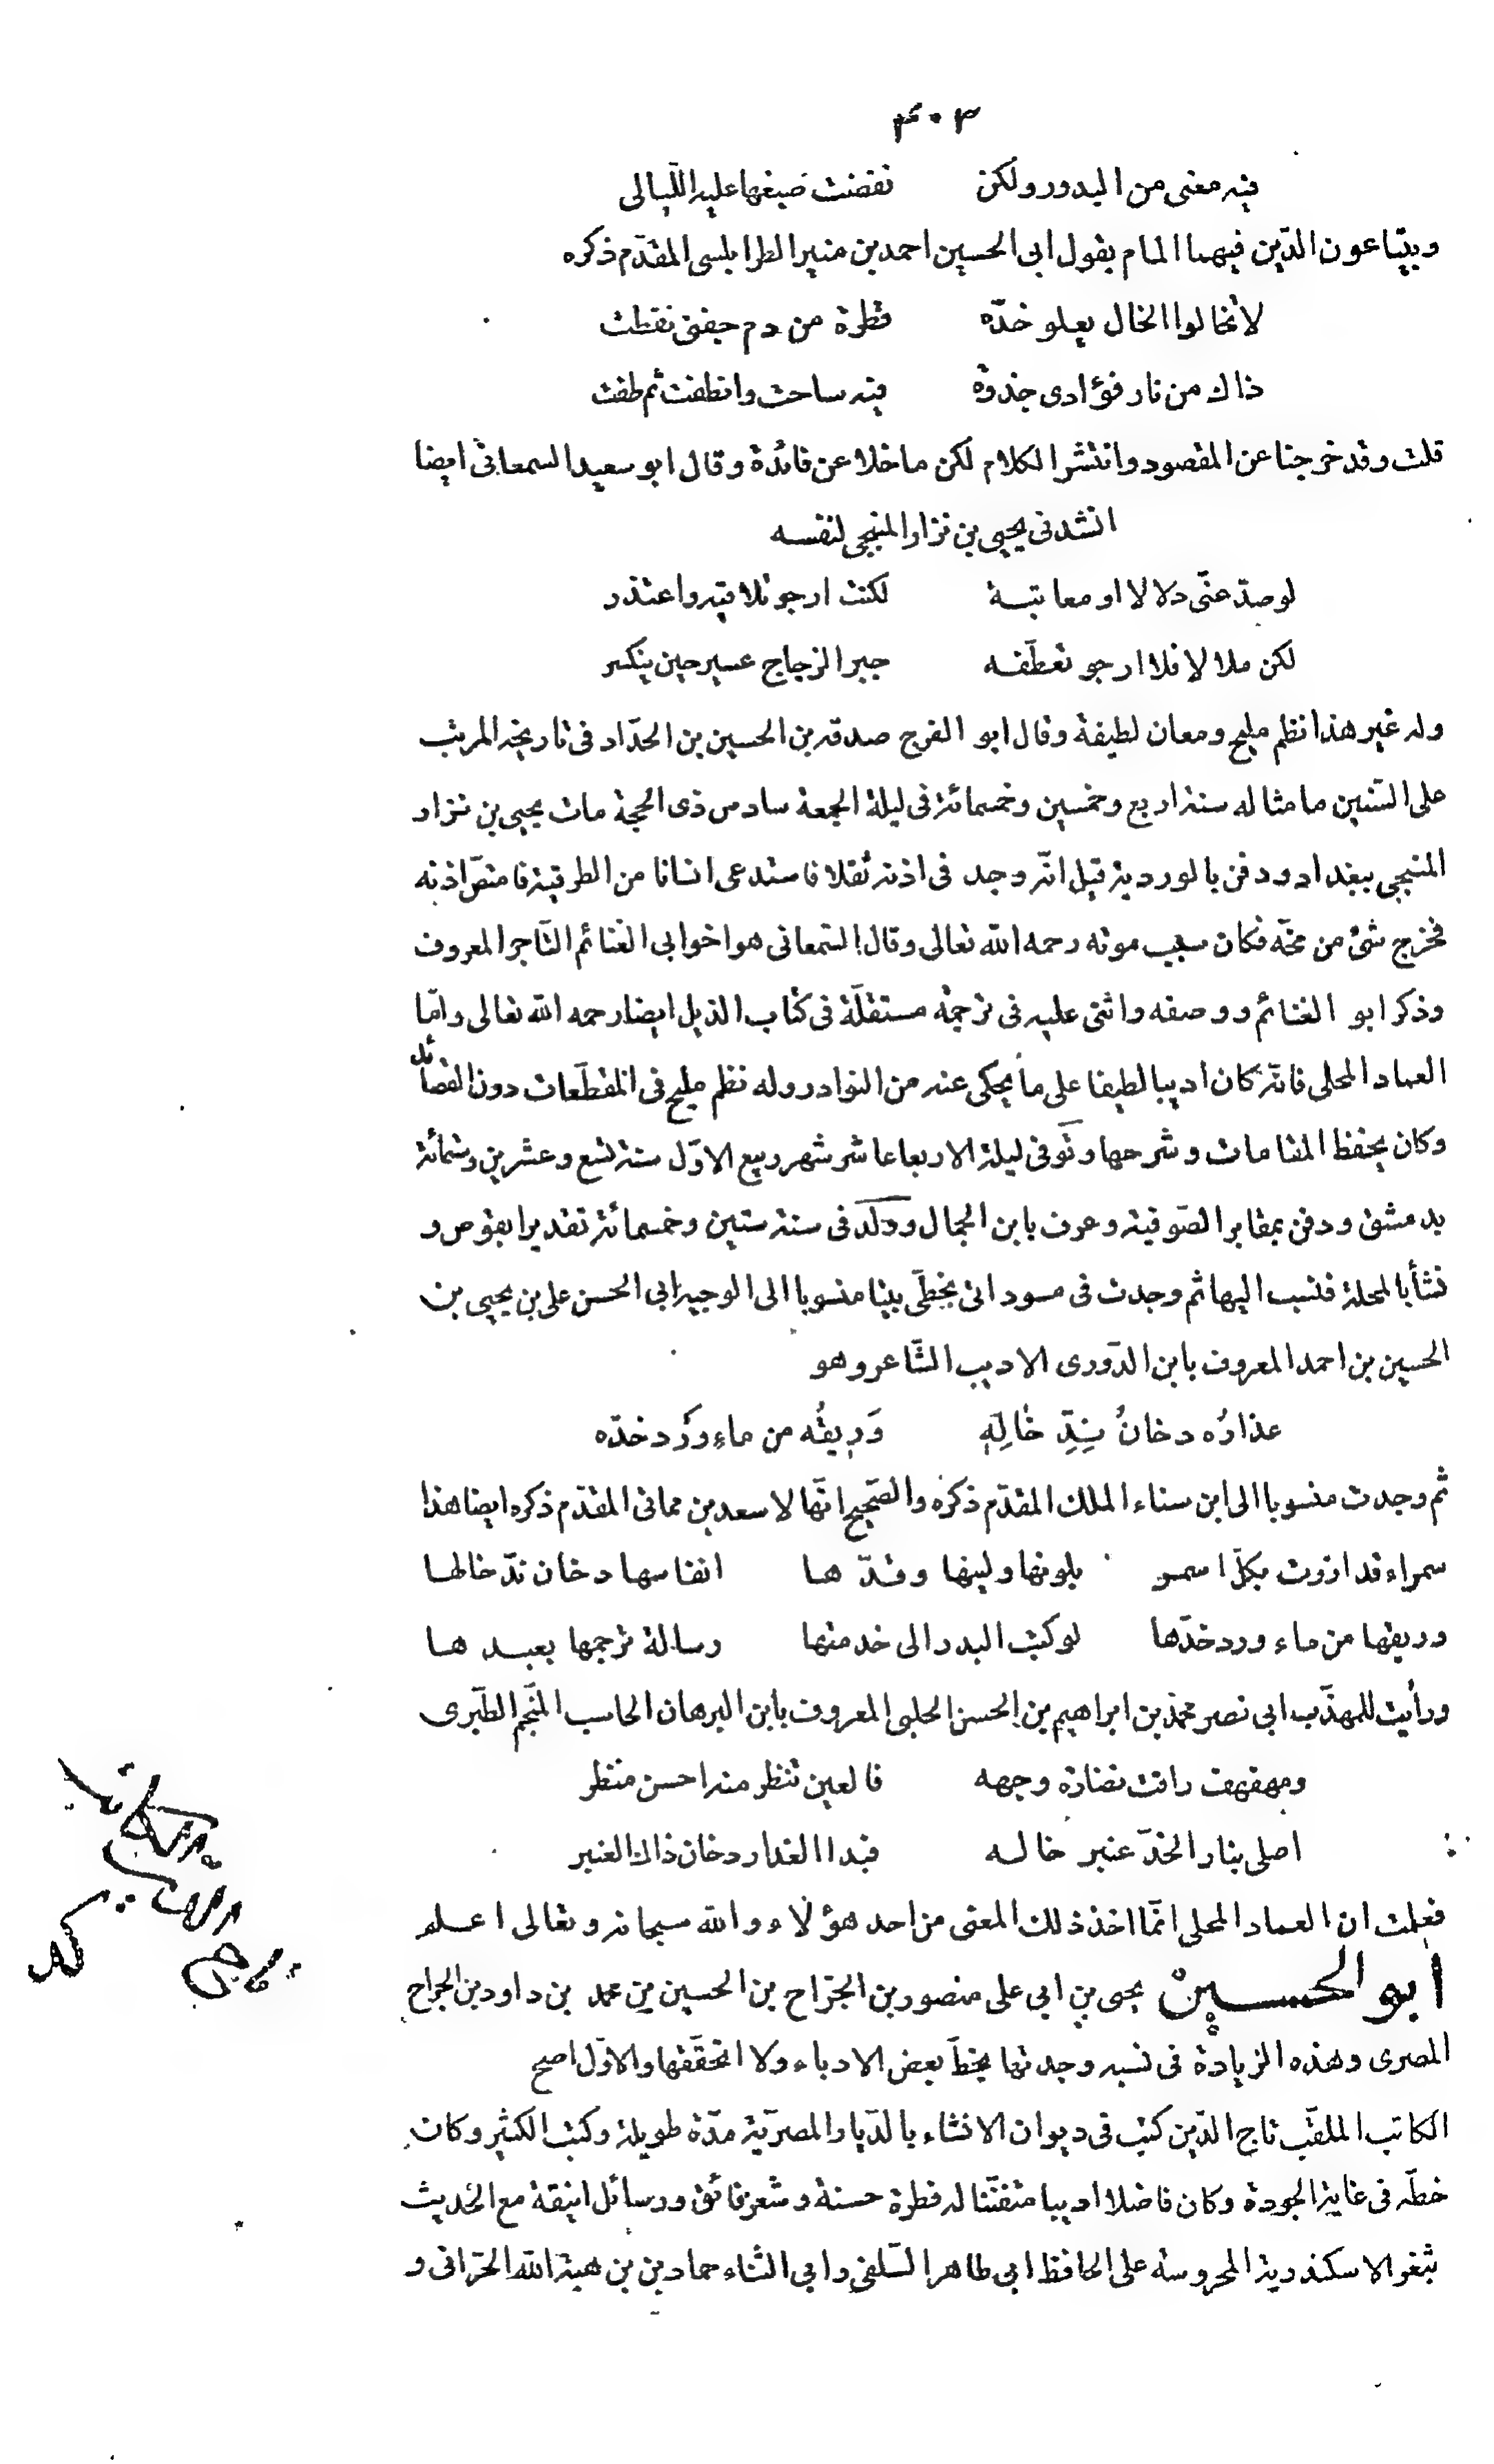 ٣٠٣
فيه معنى من البدور ولكن نفضت صبغها عليه الليالى
وبيتا عون الدّين فيهما المام بقول ابى الحسين احمد بن منير الطرابلسى المقدّم ذكره
لا تخالوا الخال يعلو خدّه قطرة من دم جفنى نقطت
ذاك من نار فؤادى جذوة فيه ساخت وانطفت ثم طفت
قلت وقد خرجنا عن المقصود وانتشر الكلام لكن ما خلا عن فائدة وقال ابو سعيد السمعانى ايضا
انشدنى يحيى بن نزار المنبجى لنفسه
لو صدّ عنّى دلالا او معاتبة لكنت ارجو تلافيه واعتذر
لكن ملالا فلا ارجو تعطّفه جبر الزجاج عسير حين ينكسر
وله غير هذا نظم مليح ومعان لطيفة وقال ابو الفرج صدقه بن الحسين بن الحدّاد فى تاريخه المرتب
على السّنين ما مثاله سنة اربع وخمسين وخمسمائة فى ليلة الجمعة سادس ذى الحجة مات يحيى بن نزار
المنبجى ببغداد ودفن بالوردية قيل انّه وجد فى اذنه ثقلا فاستدعى انسانا من الطرقية فامتصّ اذنه
فخرج شئ من مخّه فكان سبب موته رحمه الله تعالى وقال السّمعانى هو اخو ابى الغنائم التّاجر المعروف
وذكر ابو الغنائم ووصفه واثنى عليه فى ترجمة مستقلّة فى كتاب الذيل ايضا رحمه الله تعالى وامّا
العماد المحلى فانّه كان اديبا لطيفا على ما يحكى عنه من النوادر وله نظم مليح فى المقطّعات دون القصائد
وكان يحفظ المقامات وشرحها وتوفى ليلة الاربعا عاشر شهر ربيع الاوّل سنة تسع وعشرين وستمائة
بدمشق ودفن بمقابر الصّوفية وعرف بابن الجمال وولد فى سنة ستين وخمسمائة تقديرا بقوص و
نشأ بالمحلة فنسب اليها ثم وجدت فى مسوداتى بخطّى بيتا منسوبا الى الوجيه ابى الحسن على بن يحيى بن
الحسين بن احمد المعروف بابن الدّورى الاديب الشّاعر وهو
عذارُه دخانُ نِدِّ خالِهِ وَرِيقُه من ماءِ وَرْد خدّه
ثم وجدت منسوبا الى ابن سناء الملك المقدّم ذكره والصّحيح انّها لاسعد بن مماتى المقدّم ذكره ايضا هذا
سمراء قد ازرت بكلّ اسمر بلونها ولينها وقدّها انفاسها دخان ندّ خالها
وريقها من ماء ورد خدّها لو كتب البدر الى خدمتها رسالة ترجمها بعبدها
ورأيت للمهذّب ابى نصر محمد بن ابراهيم بن الحسن الحلبى المعروف بابن البرهان الحاسب المنّجم الطّبرى
ومهفهف راقت نضارة وجهه فالعين تنظر منه احسن منظر
اصلى بنار الخدّ عنبر خاله فبدا العذار دخان ذاك العنبر
فعلمت ان العماد المحلى انّما اخذ ذلك المعنى من احد هؤلاء والله سبحانه وتعالى اعلم
ابو الحسين يحيى بن ابى على منصور بن الجرّاح بن الحسين بن محمد بن داود بن الجراح
المصرى وهذه الزيادة فى نسبه وجدتها بخطّ بعض الادباء ولا اتحققها والاوّل اصح
الكاتب الملقّب تاج الدّين كتب فى ديوان الانشاء بالدّيار المصريّة مدّة طويلة وكتب الكثير وكان
خطّه فى غاية الجودة وكان فاضلا اديبا متفنّنا له فطرة حسنة وشعر فائق ورسائل انيقة سمع الحديث
بثغر الاسكندرية المحروسة على الحافظ ابى طاهر السّلفى وابى الثناء حماد بن بن هبة الله الحرّانى و
الكاتب